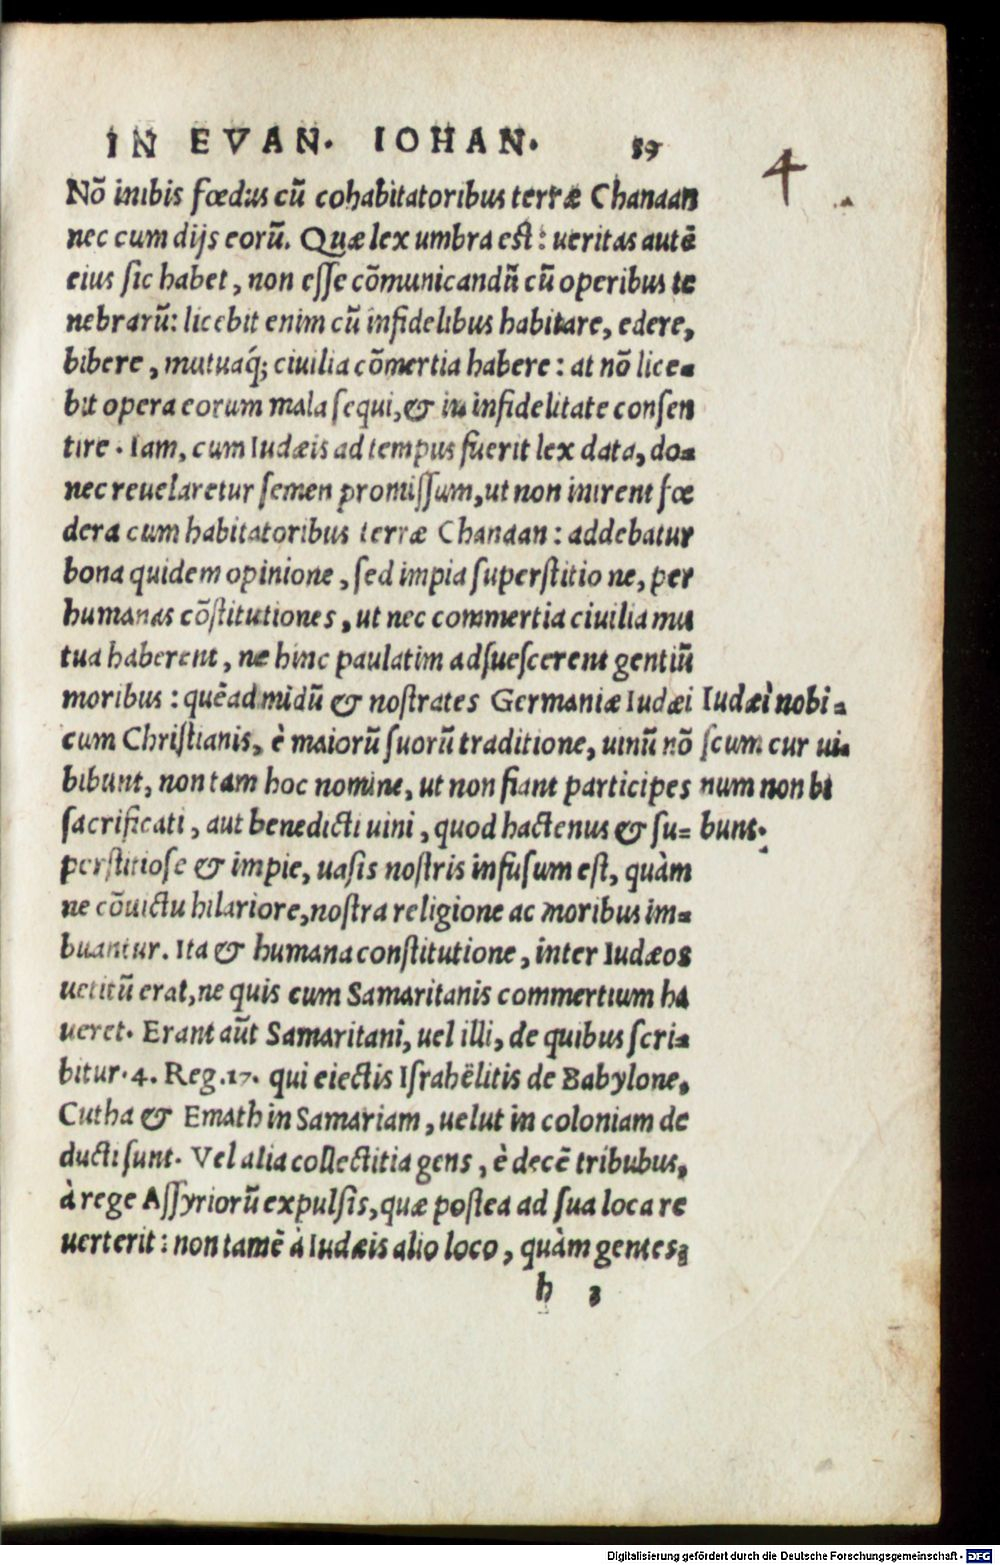 IN EVAN. IOHAN. 59
4
Nõ inibis fœdus cũ cohabitatoribus terræ Chanaan
nec cum dijs eorũ. Quæ lex umbra est: ueritas autẽ
eius sic habet, non esse cõmunicandũ cũ operibus te
nebrarũ: licebit enim cũ infidelibus habitare, edere,
bibere, mutuaq́; ciuilia cõmertia habere: at nõ lice-
bit opera eorum mala sequi, & in infidelitate consen
tire. Iam, cum Iudæis ad tempus fuerit lex data, do-
nec reuelaretur semen promissum, ut non inirent fœ
dera cum habitatoribus terræ Chanaan: addebatur
bona quidem opinione, sed impia superstitio ne, per
humanas cõstitutiones, ut nec commertia ciuilia mu
tua haberent, ne hinc paulatim adsuescerent gentiũ
moribus: quẽadmidũ & nostrates Germaniæ Iudæi
cum Christianis, è maiorũ suorũ traditione, uinũ nõ
bibunt, non tam hoc nomine, ut non fiant participes
sacrificati, aut benedicti uini, quod hactenus & su=
perstitiose & impie, uasis nostris infusum est, quàm
ne cõuictu hilariore, nostra religione ac moribus im-
buantur. Ita & humana constitutione, inter Iudæos
uetitũ erat, ne quis cum Samaritanis commertium ha
ueret. Erant aũt Samaritani, uel illi, de quibus scri-
bitur. 4. Reg. 17. qui eiectis Israhëlitis de Babylone,
Cutha & Emath in Samariam, uelut in coloniam de
ducti sunt. Vel alia collectitia gens, è decẽ tribubus,
à rege Assyriorũ expulsis, quæ postea ad sua loca re
uerterit: non tamẽ à Iudæis alio loco, quàm gentes,
h 3
Iudæi nobi-
scum cur ui-
num non bi
bunt.
Digitalisierung gefördert durch die Deutsche Forschungsgemeinschaft - DFG